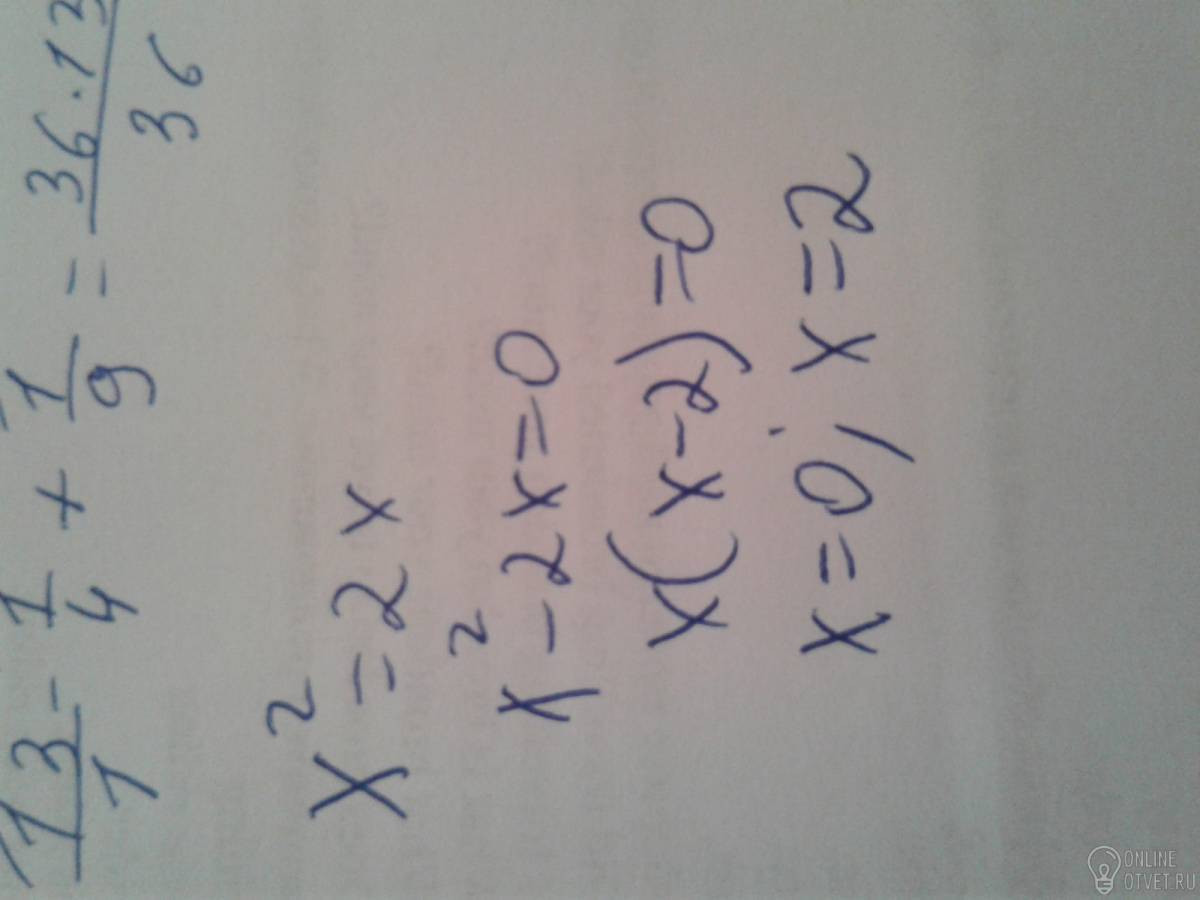 13/1 - 1/4 + 1/9 = 36·13/36
x² = 2x
x² - 2x = 0
x(x-2) = 0
x = 0; x = 2
ONLINE
OTVET.RU